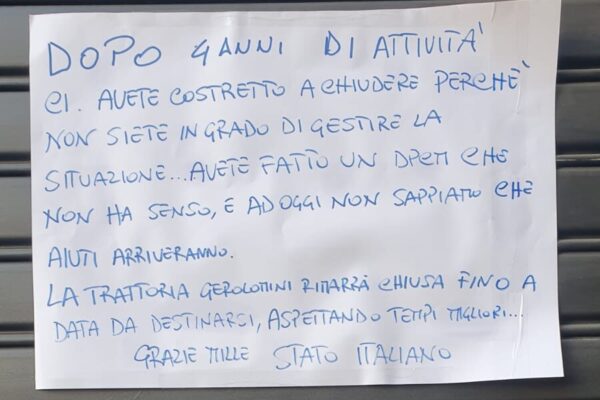 DOPO 9 ANNI DI ATTIVITA'
CI. AVETE COSTRETTO A CHIUDERE PERCHE'
NON SIETE IN GRADO DI GESTIRE LA
SITUAZIONE...AVETE FATTO UN DPCM CHE
NON HA SENSO, E AD OGGI NON SAPPIAMO CHE
AIUTI ARRIVERANNO.
LA TRATTORIA GEROLOMINI RIMARRÀ CHIUSA FINO A
DATA DA DESTINARSI, ASPETTANDO TEMPI MIGLIORI...
GRAZIE MILLE STATO ITALIANO